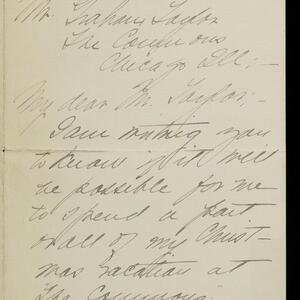 Mr. Graham Taylor
The Commons
Chicago Ill; -
My dear Mr. Taylor; -
I am writing you
to know if it will
be possible for me
to spend a part
or all of my Christ-
mas vacation at
The Commons.